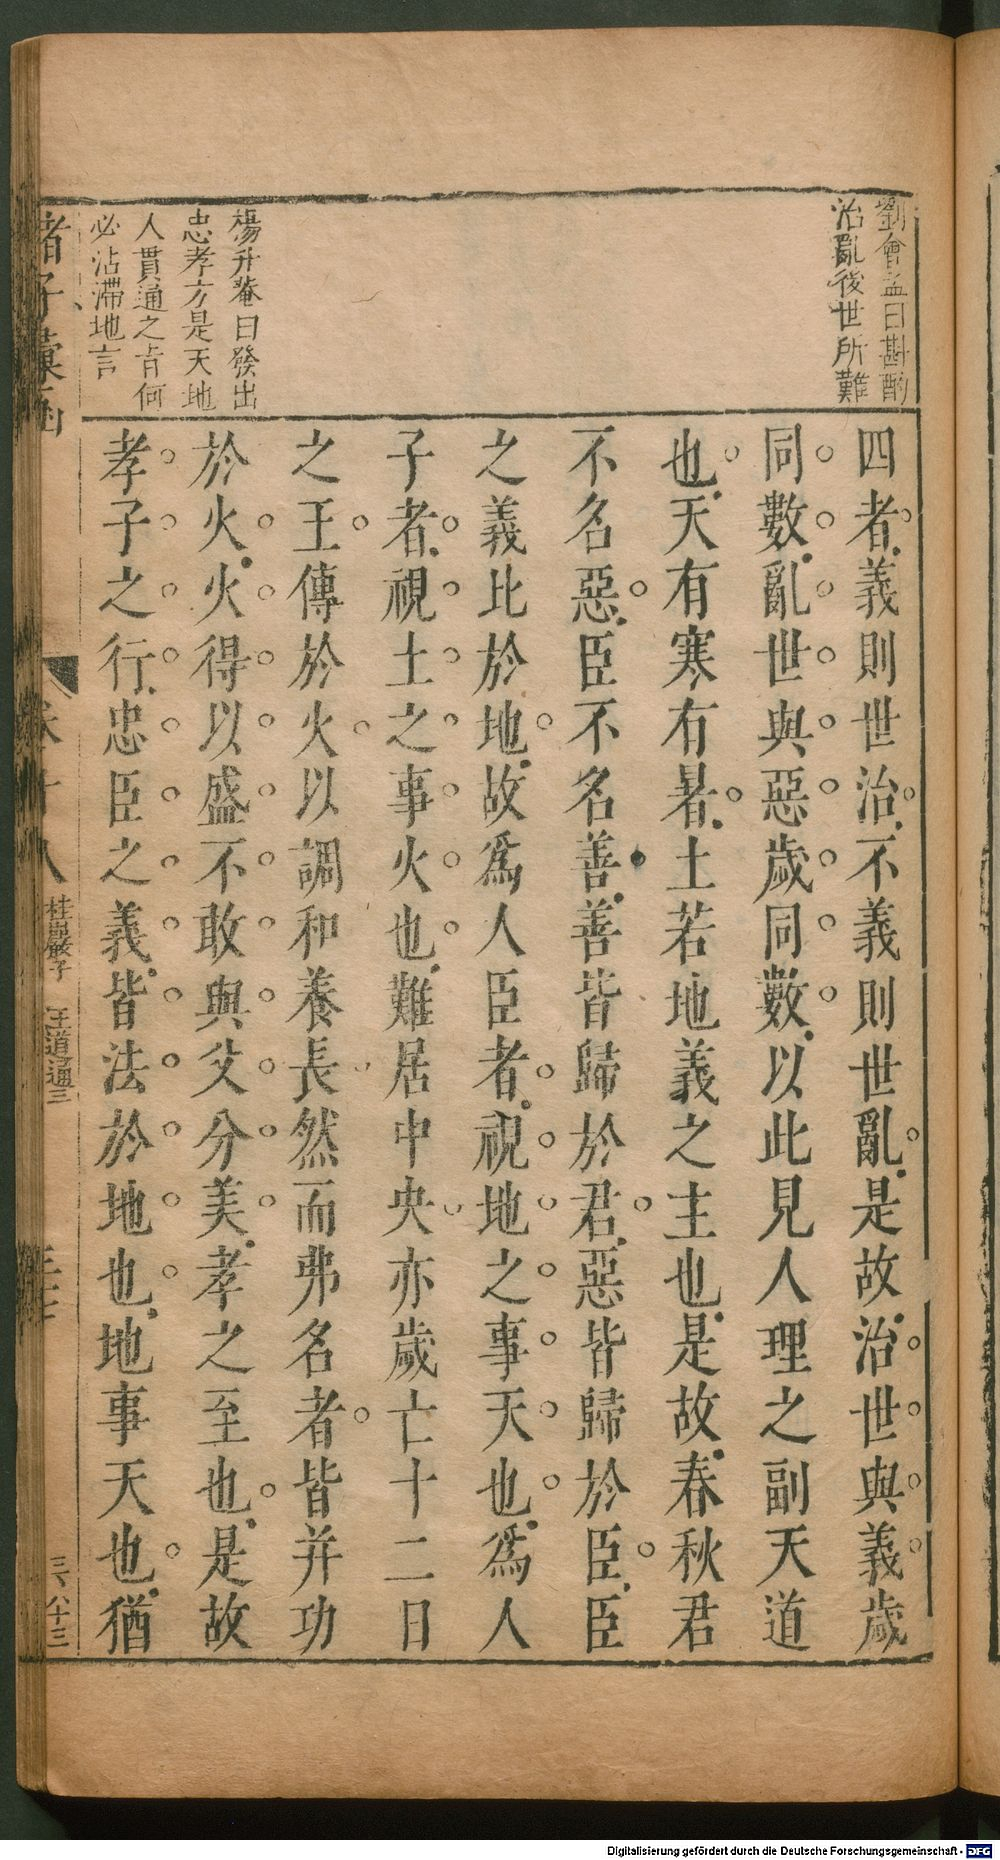 劉會孟曰斟酌
治亂後世所難
楊升菴曰發出
忠孝方是天地
人貫通之旨何
必沾滯地言
四者義則世治不義則世亂是故治世與義歲
同數亂世與惡歲同數以此見人理之副天道
也天有寒有暑土若地義之主也是故春秋君
不名惡臣不名善善皆歸於君惡皆歸於臣臣
之義比於地故爲人臣者視地之事天也爲人
子者視土之事火也難居中央亦歲亡十二日
之王傳於火以調和養長然而弗名者皆并功
於火火得以盛不敢與父分美孝之至也是故
孝子之行忠臣之義皆法於地也地事天也猶
諸子彙函
卷十八
桂巖子 王道通三
Digitalisierung gefördert durch die Deutsche Forschungsgemeinschaft - DFG